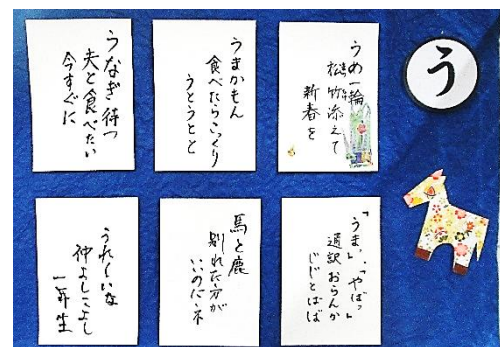 う
うめ一輪
松竹添えて
新春を
うまかもん
食べたらこっくり
うとうとと
うなぎ待つ
夫と食べたい
今すぐに
「うま」、「やばっ」
通訳おらんか
じじとばば
馬と鹿
別れた方が
いいのにネ
うれしいな
仲よしこよし
一年生